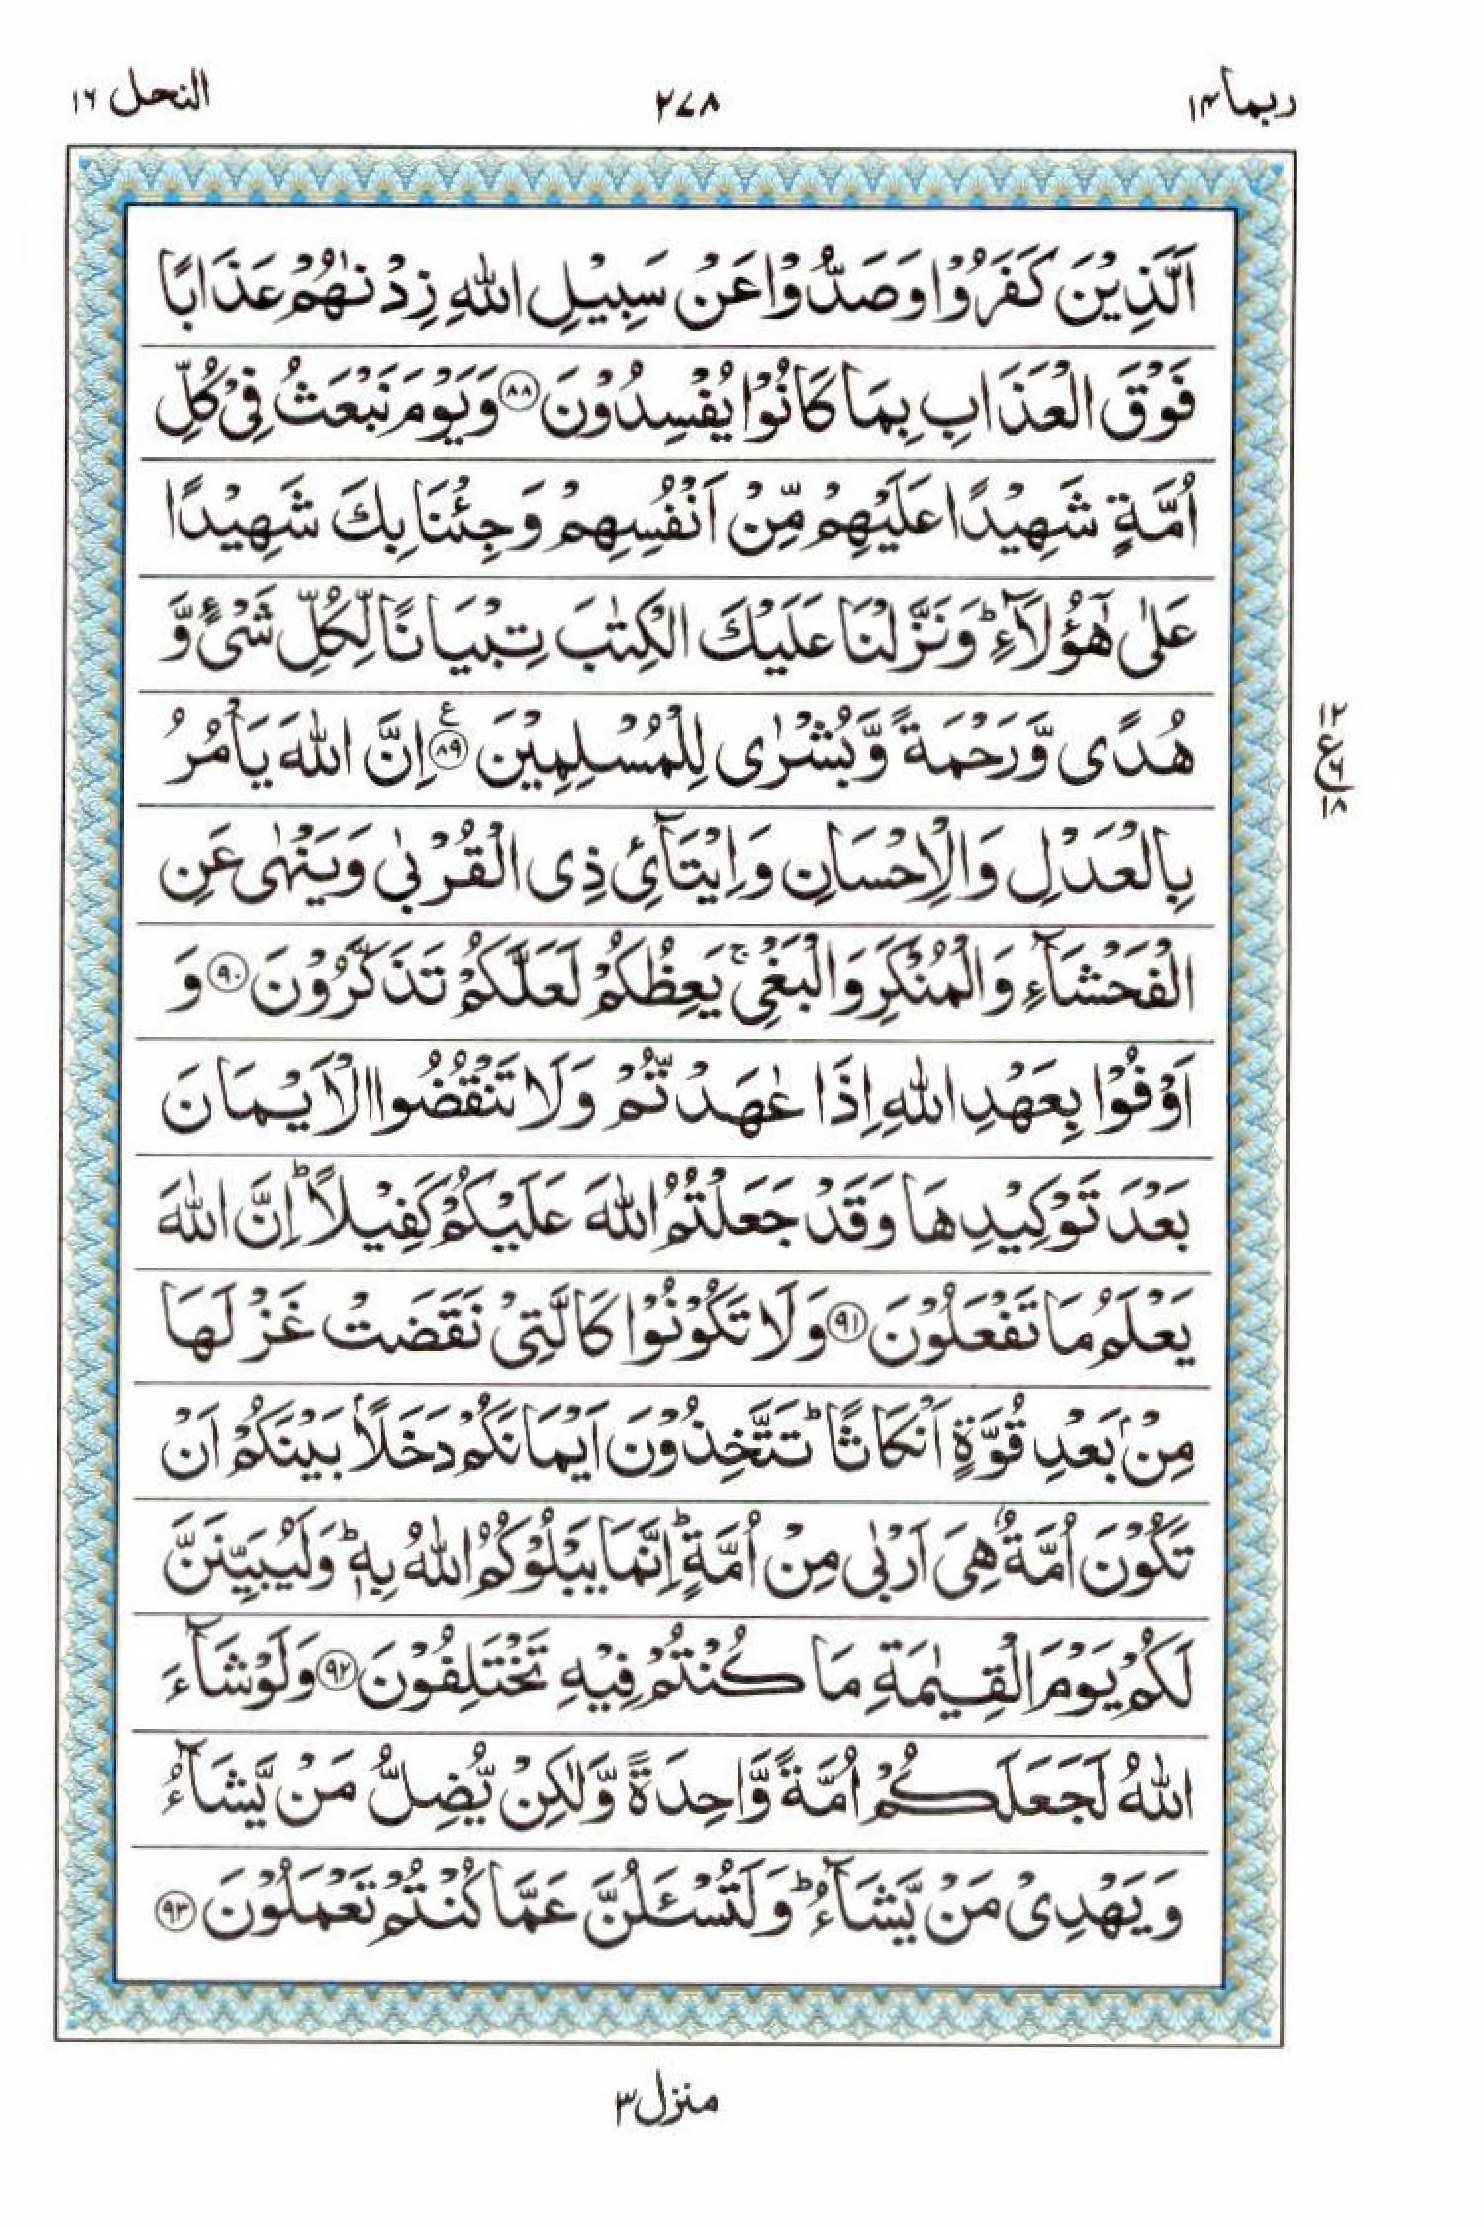 ربما ١٤
٢٧٨
النحل ١٦
اَلَّذِيْنَ كَفَرُوْا وَصَدُّوْا عَنْ سَبِيْلِ اللّٰهِ زِدْنٰهُمْ عَذَابًا
فَوْقَ الْعَذَابِ بِمَا كَانُوْا يُفْسِدُوْنَ ﴿٨٨﴾ وَيَوْمَ نَبْعَثُ فِيْ كُلِّ
اُمَّةٍ شَهِيْدًا عَلَيْهِمْ مِّنْ اَنْفُسِهِمْ وَجِئْنَا بِكَ شَهِيْدًا
عَلٰى هٰٓؤُلَآءِ ؕ وَنَزَّلْنَا عَلَيْكَ الْكِتٰبَ تِبْيَانًا لِّكُلِّ شَيْءٍ وَّ
هُدًى وَّرَحْمَةً وَّبُشْرٰى لِلْمُسْلِمِيْنَ ﴿٨٩﴾ ع اِنَّ اللّٰهَ يَاْمُرُ
بِالْعَدْلِ وَالْاِحْسَانِ وَاِيْتَآئِ ذِى الْقُرْبٰى وَيَنْهٰى عَنِ
الْفَحْشَآءِ وَالْمُنْكَرِ وَالْبَغْيِ ۚ يَعِظُكُمْ لَعَلَّكُمْ تَذَكَّرُوْنَ ﴿٩٠﴾ وَ
اَوْفُوْا بِعَهْدِ اللّٰهِ اِذَا عٰهَدْتُّمْ وَلَا تَنْقُضُوا الْاَيْمَانَ
بَعْدَ تَوْكِيْدِهَا وَقَدْ جَعَلْتُمُ اللّٰهَ عَلَيْكُمْ كَفِيْلًا ؕ اِنَّ اللّٰهَ
يَعْلَمُ مَا تَفْعَلُوْنَ ﴿٩١﴾ وَلَا تَكُوْنُوْا كَالَّتِيْ نَقَضَتْ غَزْلَهَا
مِنْۢ بَعْدِ قُوَّةٍ اَنْكَاثًا ؕ تَتَّخِذُوْنَ اَيْمَانَكُمْ دَخَلًاۢ بَيْنَكُمْ اَنْ
تَكُوْنَ اُمَّةٌ هِيَ اَرْبٰى مِنْ اُمَّةٍ ؕ اِنَّمَا يَبْلُوْكُمُ اللّٰهُ بِهٖ ؕ وَلَيُبَيِّنَنَّ
لَكُمْ يَوْمَ الْقِيٰمَةِ مَا كُنْتُمْ فِيْهِ تَخْتَلِفُوْنَ ﴿٩٢﴾ وَلَوْ شَآءَ
اللّٰهُ لَجَعَلَكُمْ اُمَّةً وَّاحِدَةً وَّلٰكِنْ يُّضِلُّ مَنْ يَّشَآءُ
وَيَهْدِيْ مَنْ يَّشَآءُ ؕ وَلَتُسْـَٔلُنَّ عَمَّا كُنْتُمْ تَعْمَلُوْنَ ﴿٩٣﴾
١٢
ع
٦
١٨
منزل ٣